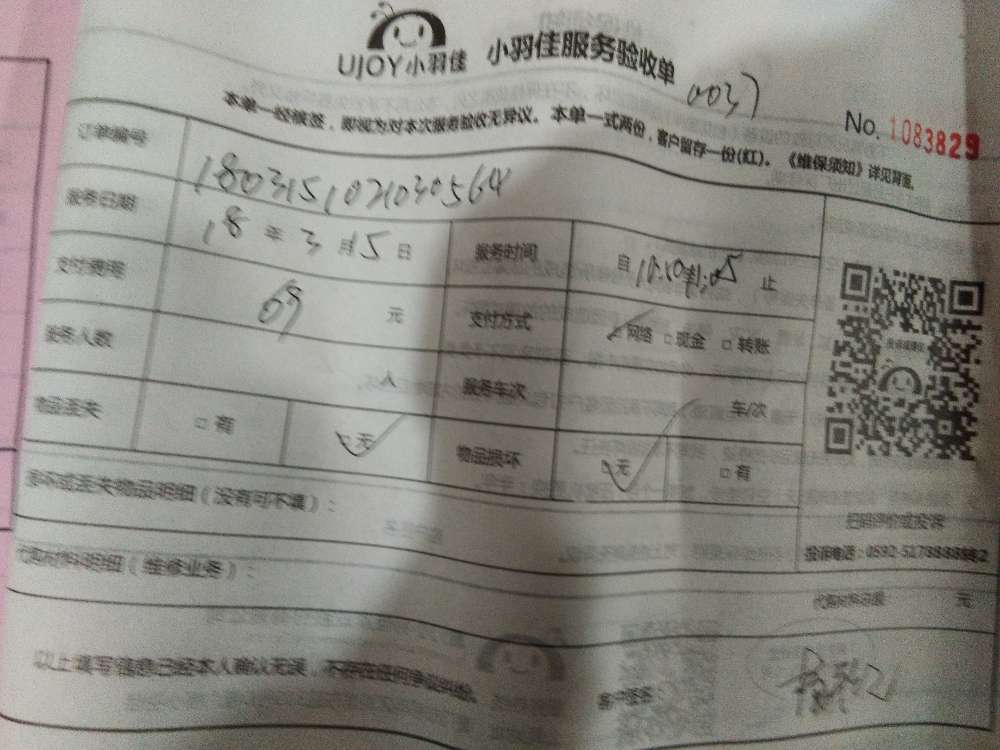 UJOY小羽佳 小羽佳服务验收单
0037
No. 1083829
本单一经核签，即视为对本次服务验收无异议。本单一式两份，客户留存一份(红)。《维保须知》详见背面。
订单编号 1803151021030564
服务日期 18年3月15日 服务时间 自 止
支付费用 69 元 支付方式 网络 □现金 □转账
服务人数 人 服务车次 车/次
物品丢失 □有 □无 物品损坏 □无 □有
损坏或丢失物品明细（没有可不填）：
扫码评价或投诉
投诉电话：0592-5178888转2
代购材料明细（维修业务）：
代购材料总额 元
以上填写信息已经本人确认无误，不存在任何争议纠纷。
客户签名：